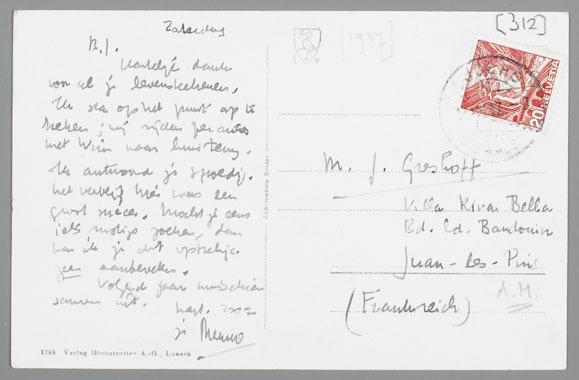 Zaterdag
B.J.
Hartelijk dank
voor al je levensteekenen.
Ik sta op het punt op te
breken; wij rijden per auto
met Wim naar
Ik antwoord je spoedig.
Het verblijf hier was een
groot succes. Mocht je eens
iets moois zoeken, dan
kan ik je dit
zeer aanbevelen.
Volgend jaar misschien
samen uit.
hart.
je Menno
1794 Verlag Globetrotter A.-G., Luzern
[1937]
[312]
HELVETIA
20
M. J. Greshoff
Villa Kiras Bella
Bd. Ed. Baudouin
Juan-les-Pins
A.M.
(Frankreich)